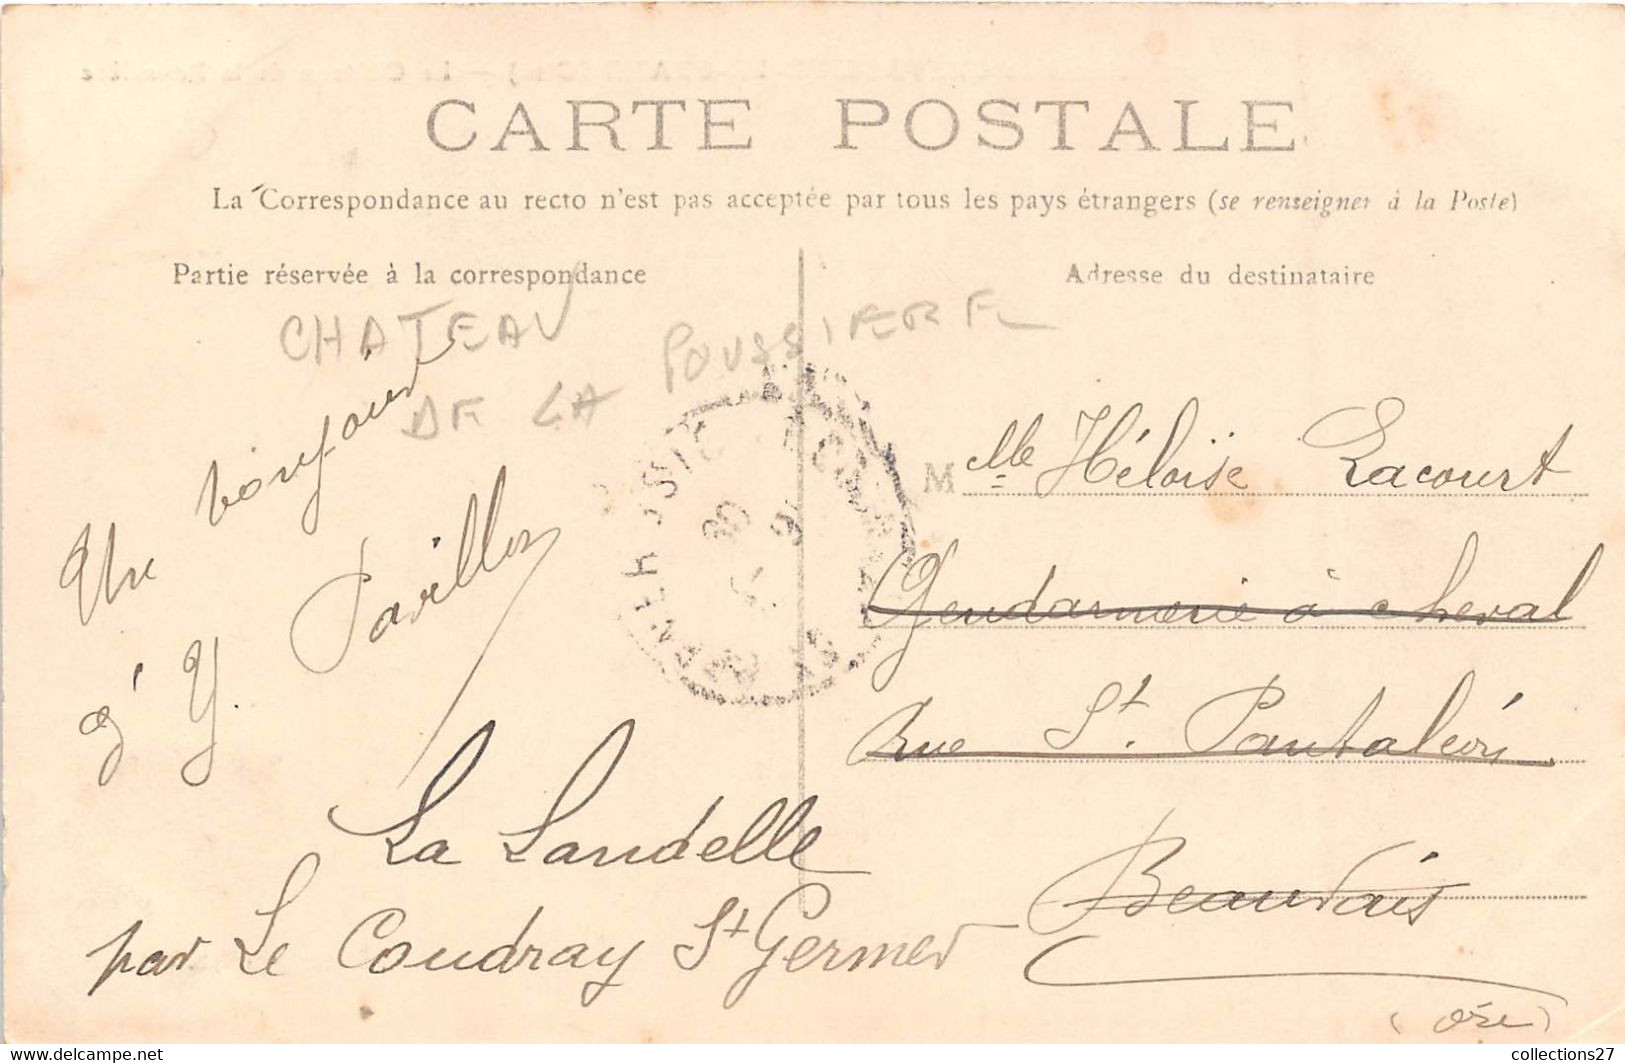 CARTE POSTALE
La Correspondance au recto n'est pas acceptée par tous les pays étrangers (se renseigner à la Poste)
Partie réservée à la correspondance
Adresse du destinataire
CHATEAU
DE LA POUSSIERE
Un bonjour
d'Y. Pavillon
La Landelle
par Le Coudray St Germer
M elle Héloïse Lacourt
Gendarmerie à cheval
Rue St. Pantaléon
Beauvais
(Oise)
collections27